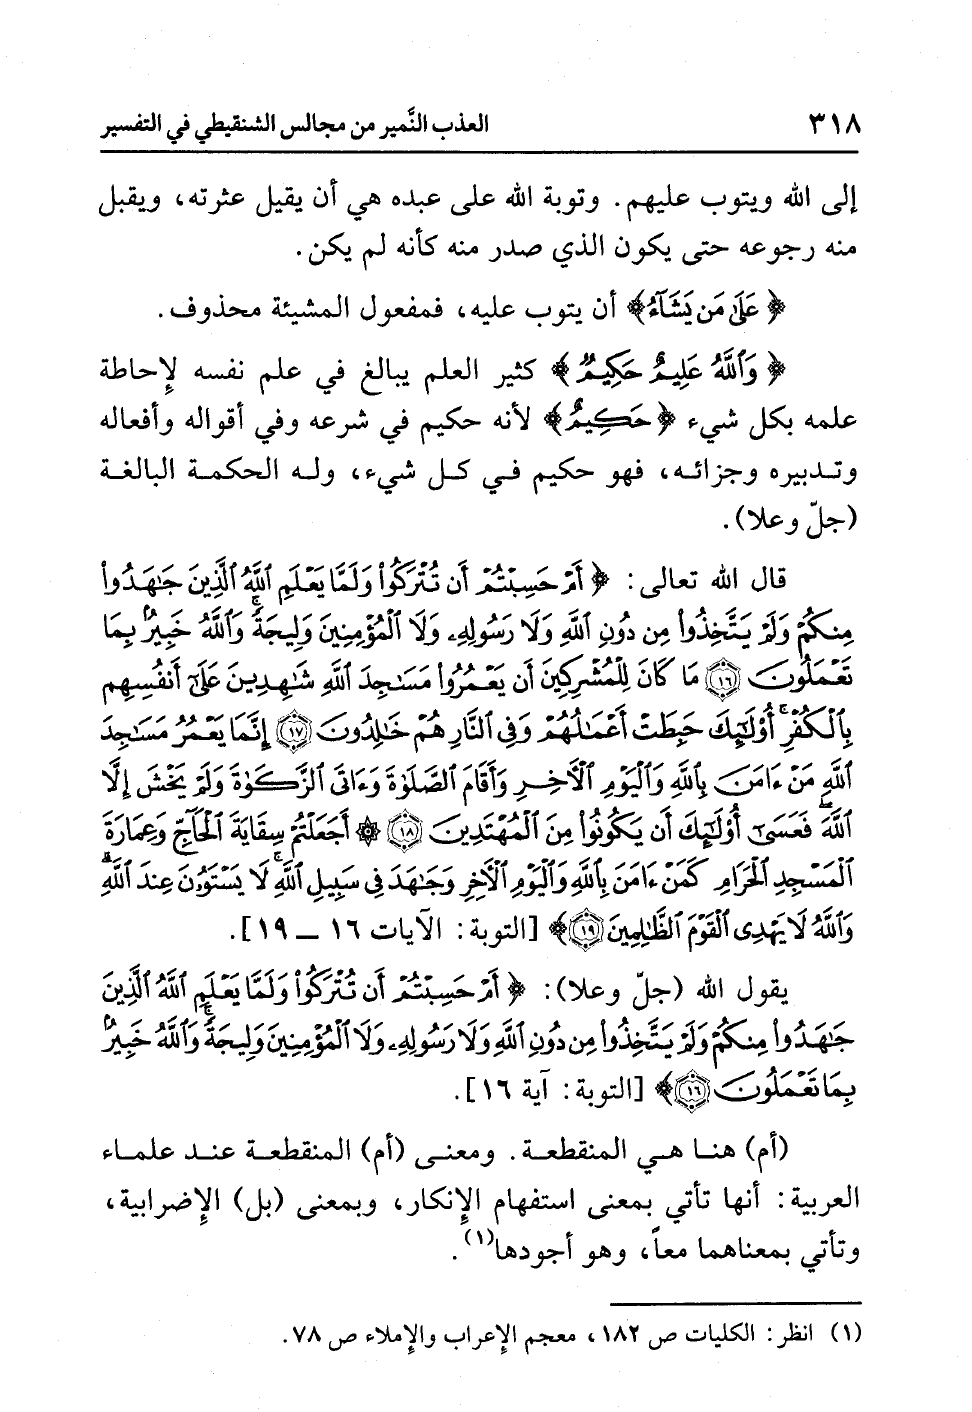 ٣١٨ العذب النَّمير من مجالس الشنقيطي في التفسير
إلى الله ويتوب عليهم. وتوبة الله على عبده هي أن يقيل عثرته، ويقبل
منه رجوعه حتى يكون الذي صدر منه كأنه لم يكن.
﴿عَلَىٰ مَن يَشَآءُ﴾ أن يتوب عليه، فمفعول المشيئة محذوف.
﴿وَٱللَّهُ عَلِيمٌ حَكِيمٌ﴾ كثير العلم يبالغ في علم نفسه لإحاطة
علمه بكل شيء ﴿حَكِيمٌ﴾ لأنه حكيم في شرعه وفي أقواله وأفعاله
وتدبيره وجزائه، فهو حكيم في كل شيء، وله الحكمة البالغة
(جلّ وعلا).
قال الله تعالى: ﴿أَمْ حَسِبْتُمْ أَن تُتْرَكُوا۟ وَلَمَّا يَعْلَمِ ٱللَّهُ ٱلَّذِينَ جَـٰهَدُوا۟
مِنكُمْ وَلَمْ يَتَّخِذُوا۟ مِن دُونِ ٱللَّهِ وَلَا رَسُولِهِۦ وَلَا ٱلْمُؤْمِنِينَ وَلِيجَةً ۚ وَٱللَّهُ خَبِيرٌۢ بِمَا
تَعْمَلُونَ ۝١٦ مَا كَانَ لِلْمُشْرِكِينَ أَن يَعْمُرُوا۟ مَسَـٰجِدَ ٱللَّهِ شَـٰهِدِينَ عَلَىٰٓ أَنفُسِهِم
بِٱلْكُفْرِ ۚ أُو۟لَـٰٓئِكَ حَبِطَتْ أَعْمَـٰلُهُمْ وَفِى ٱلنَّارِ هُمْ خَـٰلِدُونَ ۝١٧ إِنَّمَا يَعْمُرُ مَسَـٰجِدَ
ٱللَّهِ مَنْ ءَامَنَ بِٱللَّهِ وَٱلْيَوْمِ ٱلْـَٔاخِرِ وَأَقَامَ ٱلصَّلَوٰةَ وَءَاتَى ٱلزَّكَوٰةَ وَلَمْ يَخْشَ إِلَّا
ٱللَّهَ ۖ فَعَسَىٰٓ أُو۟لَـٰٓئِكَ أَن يَكُونُوا۟ مِنَ ٱلْمُهْتَدِينَ ۝١٨ ۞ أَجَعَلْتُمْ سِقَايَةَ ٱلْحَآجِّ وَعِمَارَةَ
ٱلْمَسْجِدِ ٱلْحَرَامِ كَمَنْ ءَامَنَ بِٱللَّهِ وَٱلْيَوْمِ ٱلْـَٔاخِرِ وَجَـٰهَدَ فِى سَبِيلِ ٱللَّهِ ۚ لَا يَسْتَوُۥنَ عِندَ ٱللَّهِ ۗ
وَٱللَّهُ لَا يَهْدِى ٱلْقَوْمَ ٱلظَّـٰلِمِينَ ۝١٩﴾ [التوبة: الآيات ١٦ ــ ١٩].
يقول الله (جلّ وعلا): ﴿أَمْ حَسِبْتُمْ أَن تُتْرَكُوا۟ وَلَمَّا يَعْلَمِ ٱللَّهُ ٱلَّذِينَ
جَـٰهَدُوا۟ مِنكُمْ وَلَمْ يَتَّخِذُوا۟ مِن دُونِ ٱللَّهِ وَلَا رَسُولِهِۦ وَلَا ٱلْمُؤْمِنِينَ وَلِيجَةً ۚ وَٱللَّهُ خَبِيرٌۢ
بِمَا تَعْمَلُونَ ۝١٦﴾ [التوبة: آية ١٦].
(أم) هنا هي المنقطعة. ومعنى (أم) المنقطعة عند علماء
العربية: أنها تأتي بمعنى استفهام الإنكار، وبمعنى (بل) الإضرابية،
وتأتي بمعناهما معاً، وهو أجودها(١).
(١) انظر: الكليات ص ١٨٢، معجم الإعراب والإملاء ص ٧٨.